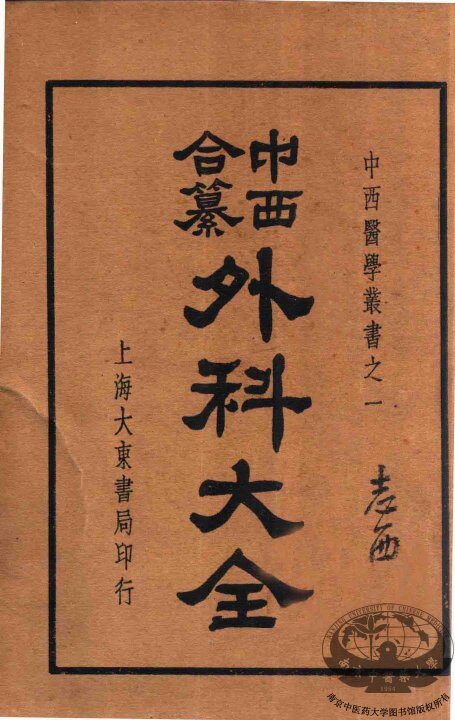 中西醫學叢書之一
中西
合纂
外科大全
上海大東書局印行
NANJING UNIVERSITY OF CHINESE MEDICINE
1954
南京中医药大学图书馆版权所有